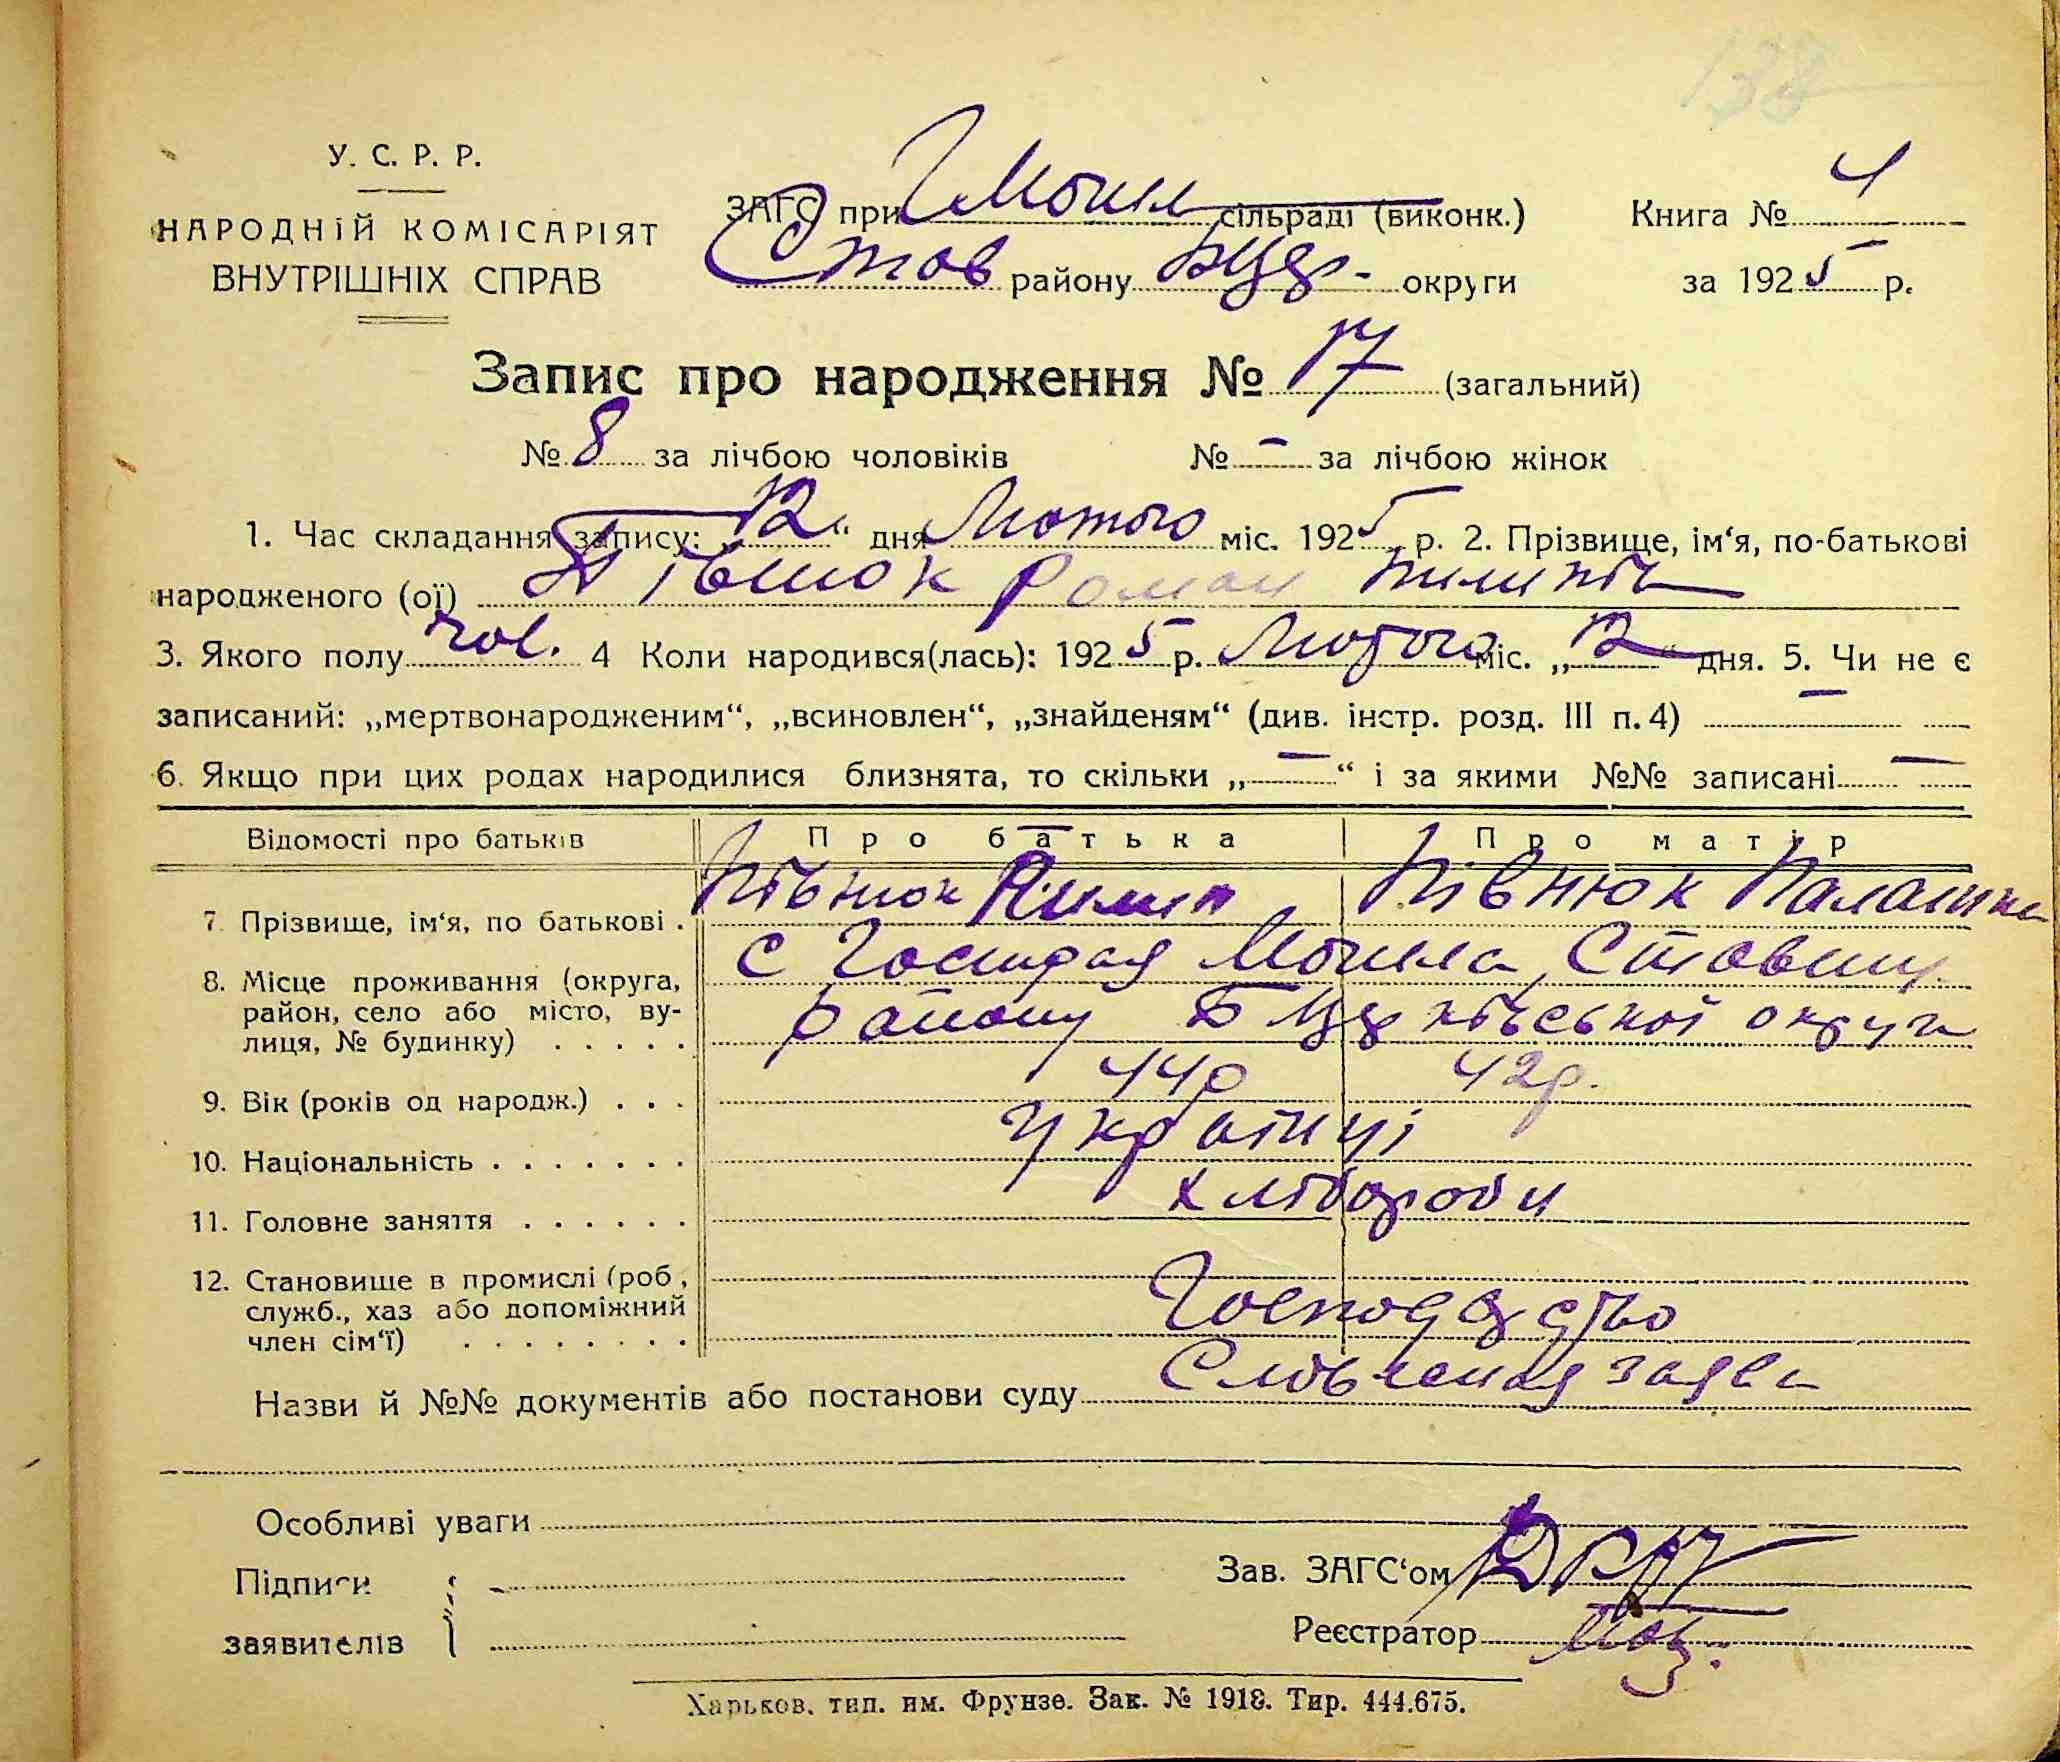 138
У. С. Р. Р.
НАРОДНІЙ КОМІСАРІЯТ
ВНУТРІШНІХ СПРАВ
ЗАГС при ГМогил сільраді (виконк.)
Став району БЦер- округи
Книга № 4
за 1925 р.
Запис про народження № 17 (загальний)
№ 8 за лічбою чоловіків № — за лічбою жінок
1. Час складання запису: „12“ дня Лютого міс. 1925 р. 2. Прізвище, ім‘я, по-батькові
народженого (ої) Півнюк Роман Пилипів
3. Якого полу чол. 4 Коли народився(лась): 1925 р. Лютого міс. „12“ дня. 5. Чи не є
записаний: „мертвонародженим“, „всиновлен“, „знайденям“ (див. інстр. розд. III п. 4) —
6. Якщо при цих родах народилися близнята, то скільки „—“ і за якими №№ записані —
Відомості про батьків Про батька Про матір
7. Прізвище, ім‘я, по батькові . Півнюк Пилип Півнюк Палашка
8. Місце проживання (округа, с Гостра Могила, Ставищ.
район, село або місто, ву-
лиця, № будинку) . . . . . району БЦерківської округи
9. Вік (років од народж.) . . . 44р 42р.
10. Національність . . . . . . . Українці
11. Головне заняття . . . . . . хлібороби
12. Становище в промислі (роб.,
служб., хаз або допоміжний
член сім‘ї) . . . . . . . . Господарство
Назви й №№ документів або постанови суду Словесная заява
Особливі уваги
Підписи
заявителів
Зав. ЗАГС‘ом
Реєстратор
Харьков. тип. им. Фрунзе. Зак. № 1918. Тир. 444.675.